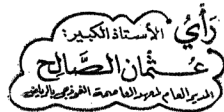 رأي الأستاذ الكبير:
عثمان الصالح
المدير العام لمعهد العاصمة النموذجي بالرياض